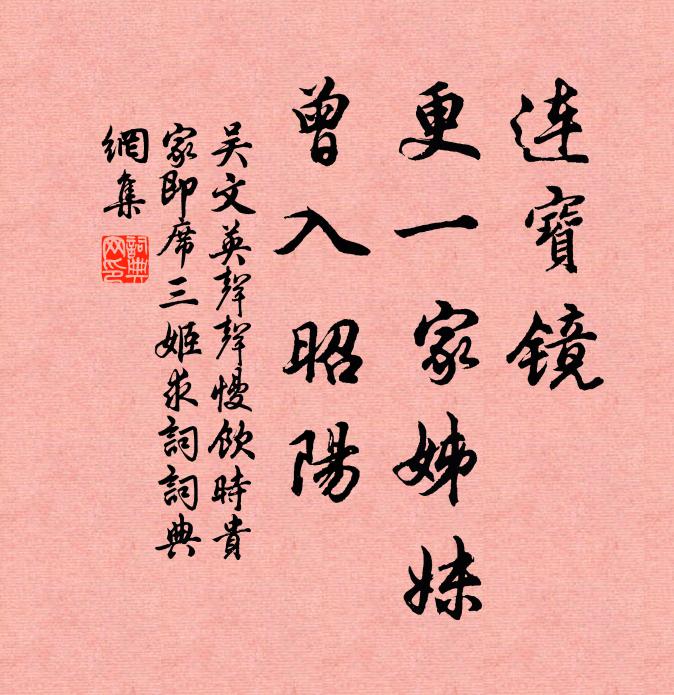 连寶镜
更一家姊妹
曾入昭陽
吴文英聲聲慢飲時貴
家即席三姬求詞詞典
網集
詞典網印